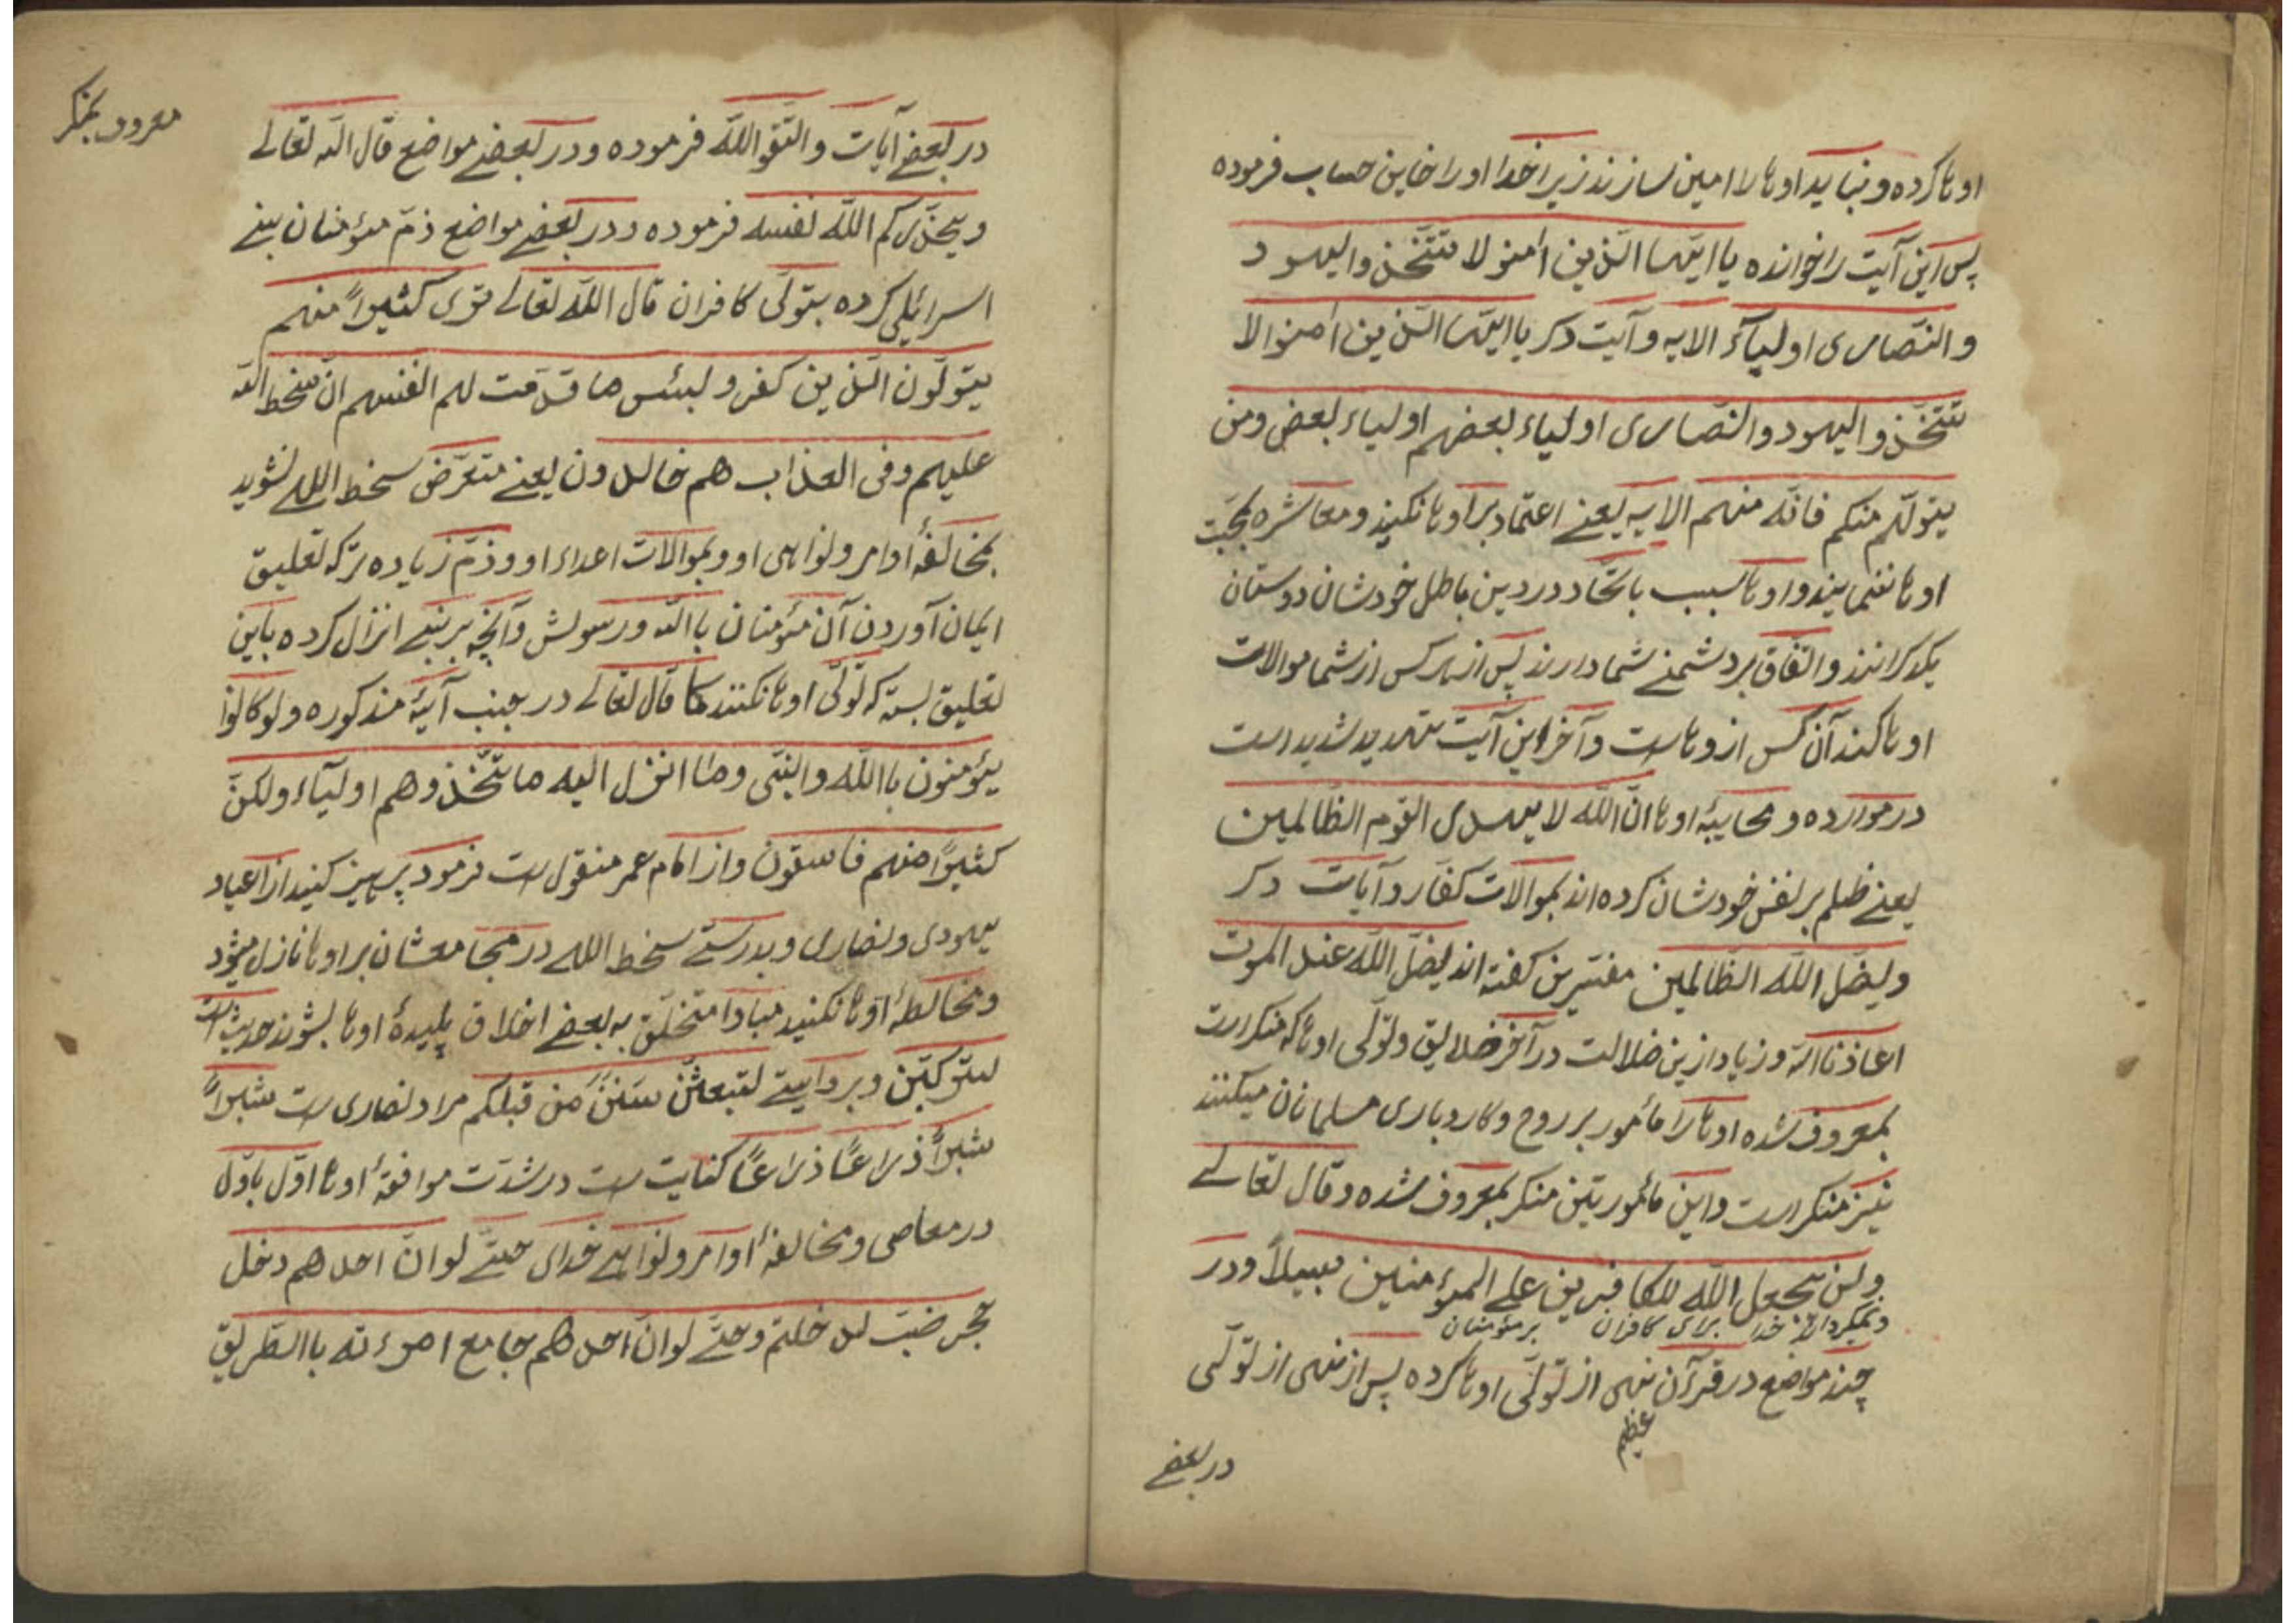 اوها کرده و نباید اوها را امین سازند زیرا خدا اورا خاین حساب فرموده
پس این آیت را خوانده یا ایّها الّذین اٰمنو لا تتّخذو الیهود
و النّصاری اولیآءَ الایه و آیت دکر یا ایّها الّذین اٰمنوا لا
تتّخذو الیهود والنّصاری اولیاء بعضهم اولیاء بعض ومن
یتولّهم منکم فانّه منهم الایه یعنے اعتماد بر اوها نکنید و معاشره بمحبّت
اوها ننمایند و اوها بسبب باتّحاد در دین باطل خودشان دوستان
یکدکرانند و اتّفاق بر دشمنے شما دارند پس از هر کس از شما موالات
اوها کند آن کس از وهاست و آخر این آیت تهدید شدید است
در موارده و محابیهٔ اوها انّ اللّه لا یهدی القوم الظّالمین
یعنے ظلم بر نفس خودشان کرده اند بموالات کفّار و آیات دکر
ویضلّ اللّه الظّالمین مفسّرین کفته اند یضلّ اللّه عند الموت
اعاذنا اللّه و زیاد ازین ضلالت در آخر خلایق و تولّی اوها که منکر است
بمعروف شده اوها را مأمور بر روح و کاروباری مسلمانان میکنند
نیز منکر است و این مأموریّتین منکر بمعروف شده و قال تعالے
ولن یجعل اللّه للکافرین علے المؤمنین سبیلاً و در
و نمیکرداند خدا برای کافران بر مؤمنان
چند مواضع در قرآن نهی از تولّی اوها کرده پس از نهی از تولّی
عظیم
در بعضے
معروف بمنکر
در بعضے آیات واتّقو اللّه فرموده و در بعضے مواضع قال اللّه تعالے
ویحذّرکم اللّه نفسه فرموده و در بعضے مواضع ذمّ مؤمنان بنے
اسرائیلی کرده بتولّی کافران قال اللّه تعالے تری کثیراً منهم
یتولّون الّذین کفرو لبئس ما قدّمت لهم انفسهم ان سخط اللّه
علیهم وفی العذاب هم خالدون یعنے متعرّض سخط اللهے نشوید
بمخالفهٔ اوامر و نواهی او و بموالات اعداء او و ذمّ زیاده ترکه تعلیق
ایمان آوردن آن مؤمنان باللّه ورسولش و آنچه بر بنے انزال کرده باین
تعلیق بسته که تولّی اوها نکنند کما قال تعالے در جنب آیهٔ مذکوره ولو کانوا
یؤمنون باللّه والنبّی وما انزل الیه ما تتّخذوهم اولیآء ولکنّ
کثیراً منهم فاسقون و از امام عمر منقول است فرمود پرهیز کنید از اعیاد
یهودی و نصاری و بدرستے سخط اللهے در مجامعشان بر اوها نازل میشود
و مخالطهٔ اوها نکنید مبادا متخلّق به بعضے اخلاق پلیدهٔ اوها بشوند حدیث است
لترکبنّ و بروایتے لتبعثنّ سننَ مَن قبلکم مراد نصاری است شبراً
شبراً ذراعاً ذراعاً کنایت است در شدّت موافقهٔ اوها اوّل باوّل
در معاصی و مخالفهٔ اوامر و نواهے خدای حتّے لو انّ احدهم دخل
جحر ضبّ لدخلتم و حتّے لو انّ احدهم جامع امرءته بالطّریق